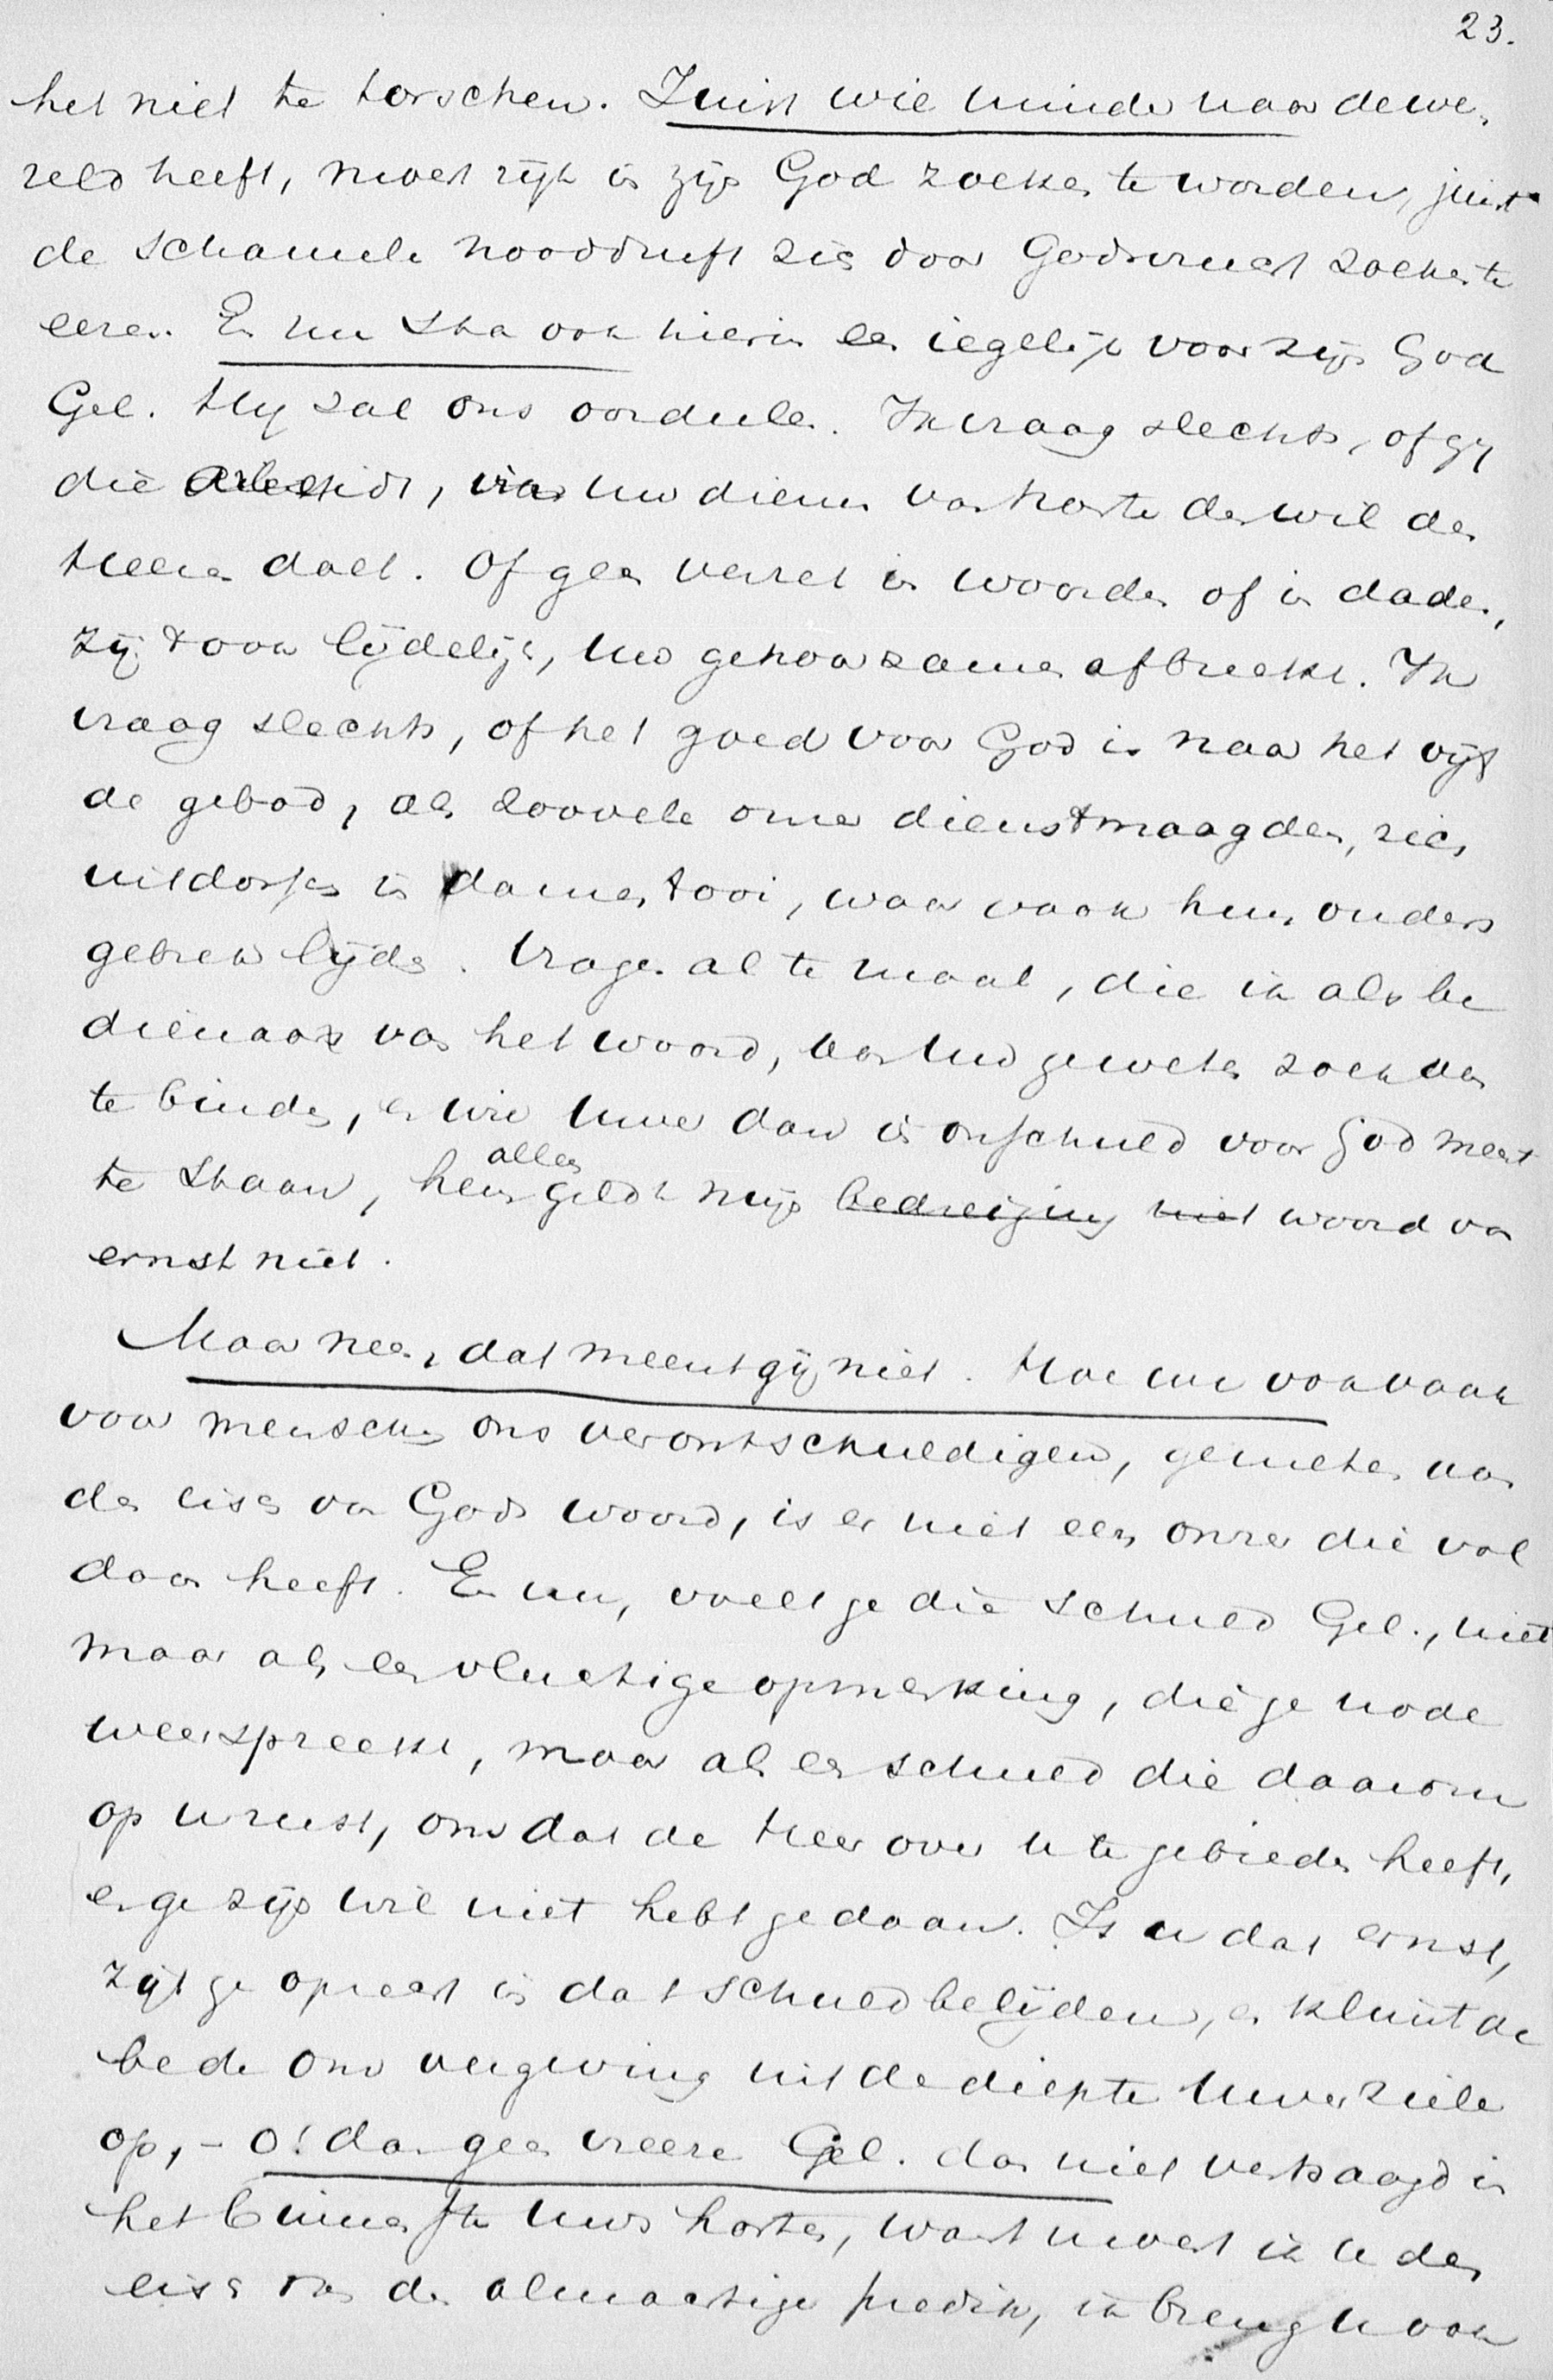 23.
het niet te torschen. Juist wie minder naar de we-
reld heeft, moet rijk in zijn God zoeken te worden, juist
de schamele nooddruft zie door Godsvrucht zoeken te
eeren. En nu sta ook hierin een iegelijk voor zijn God
Gel. Hij zal ons oordeelen. Ik vraag slechts, of gij
die arbeidt, in uw dienen van harte den wil des
Heeren doet. Of geen verzet in woorden of in daden,
zij 't ook lijdelijk, uw gehoorzamen afbreekt. Ik
vraag slechts, of het goed voor God is naar het vijf
de gebod, als zoovele onzer dienstmaagden, zich
uitdossen in damestooi, waar vaak hun ouders
gebrek lijden. Vragen al te maal, die ik als be
dienaar van het woord, aan uw geweten zoek vast
te binden, en wie Uwer dan in onschuld voor God meent
te staan, hem alleen geldt mijn bedreiging niet woord van
ernst niet.
Maar neen, dat meent gij niet. Hoe we ook vaak
voor menschen ons verontschuldigen, gemeten aan
den eisch van Gods woord, is er niet een onzer die vol
daan heeft. En nu, voelt ge die schuld Gel., niet
maar als een vluchtige opmerking, die je node
weerspreekt, maar als een schuld die daarom
op u rust, omdat de Heer over u te gebieden heeft,
en ge zijn wil niet hebt gedaan. Is u dat ernst,
zijt ge oprecht in dat schuldbelijden, en klimt de
bede om vergeving uit de diepte Uwer ziele
op, - o! dan geen vreeze Gel. dan niet vertsaagd in
het binnenste uws harten, want moest ik u den
eisch van den almachtige prediken, ik breng u ook